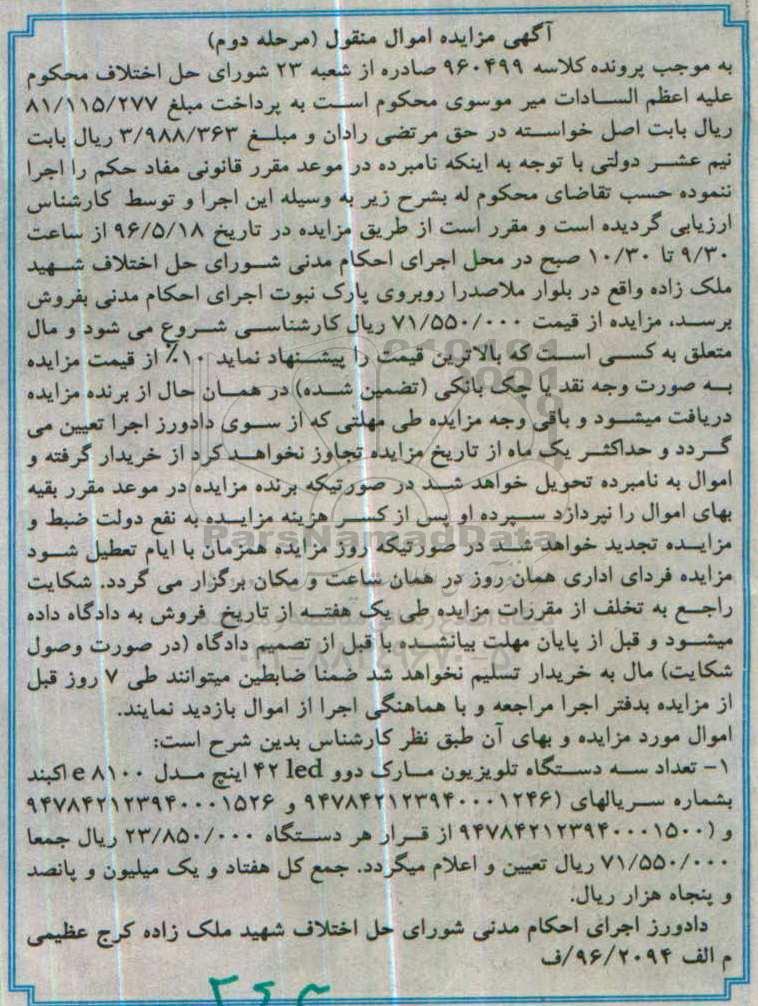 آگهی مزایده اموال منقول (مرحله دوم)
به موجب پرونده کلاسه ۹۶۰۴۹۹ صادره از شعبه ۲۳ شورای حل اختلاف محکوم
علیه اعظم السادات میر موسوی محکوم است به پرداخت مبلغ ۸۱/۱۱۵/۲۷۷
ریال بابت اصل خواسته در حق مرتضی رادان و مبلغ ۳/۹۸۸/۳۶۳ ریال بابت
نیم عشر دولتی با توجه به اینکه نامبرده در موعد مقرر قانونی مفاد حکم را اجرا
ننموده حسب تقاضای محکوم له بشرح زیر به وسیله این اجرا و توسط کارشناس
ارزیابی گردیده است و مقرر است از طریق مزایده در تاریخ ۹۶/۵/۱۸ از ساعت
۹/۳۰ تا ۱۰/۳۰ صبح در محل اجرای احکام مدنی شورای حل اختلاف شهید
ملک زاده واقع در بلوار ملاصدرا روبروی پارک نبوت اجرای احکام مدنی بفروش
برسد، مزایده از قیمت ۷۱/۵۵۰/۰۰۰ ریال کارشناسی شروع می شود و مال
متعلق به کسی است که بالاترین قیمت را پیشنهاد نماید ۱۰٪ از قیمت مزایده
به صورت وجه نقد یا چک بانکی (تضمین شده) در همان حال از برنده مزایده
دریافت میشود و باقی وجه مزایده طی مهلتی که از سوی دادورز اجرا تعیین می
گردد و حداکثر یک ماه از تاریخ مزایده تجاوز نخواهد کرد از خریدار گرفته و
اموال به نامبرده تحویل خواهد شد در صورتیکه برنده مزایده در موعد مقرر بقیه
بهای اموال را نپردازد سپرده او پس از کسر هزینه مزایده به نفع دولت ضبط و
مزایده تجدید خواهد شد در صورتیکه روز مزایده همزمان با ایام تعطیل شود
مزایده فردای اداری همان روز در همان ساعت و مکان برگزار می گردد. شکایت
راجع به تخلف از مقررات مزایده طی یک هفته از تاریخ فروش به دادگاه داده
میشود و قبل از پایان مهلت بیانشده با قبل از تصمیم دادگاه (در صورت وصول
شکایت) مال به خریدار تسلیم نخواهد شد ضمنا ضابطین میتوانند طی ۷ روز قبل
از مزایده بدفتر اجرا مراجعه و با هماهنگی اجرا از اموال بازدید نمایند.
اموال مورد مزایده و بهای آن طبق نظر کارشناس بدین شرح است:
۱- تعداد سه دستگاه تلویزیون مارک دوو led ۴۲ اینچ مدل e ۸۱۰۰ اکبند
بشماره سریالهای (۹۴۷۸۴۲۱۲۳۹۴۰۰۰۱۲۴۶ و ۹۴۷۸۴۲۱۲۳۹۴۰۰۰۱۵۲۶
و (۹۴۷۸۴۲۱۲۳۹۴۰۰۰۱۵۰۰ از قرار هر دستگاه ۲۳/۸۵۰/۰۰۰ ریال جمعا
۷۱/۵۵۰/۰۰۰ ریال تعیین و اعلام میگردد. جمع کل هفتاد و یک میلیون و پانصد
و پنجاه هزار ریال.
دادورز اجرای احکام مدنی شورای حل اختلاف شهید ملک زاده کرج عظیمی
م الف ۹۶/۲۰۹۴/ف
ParsNamadData